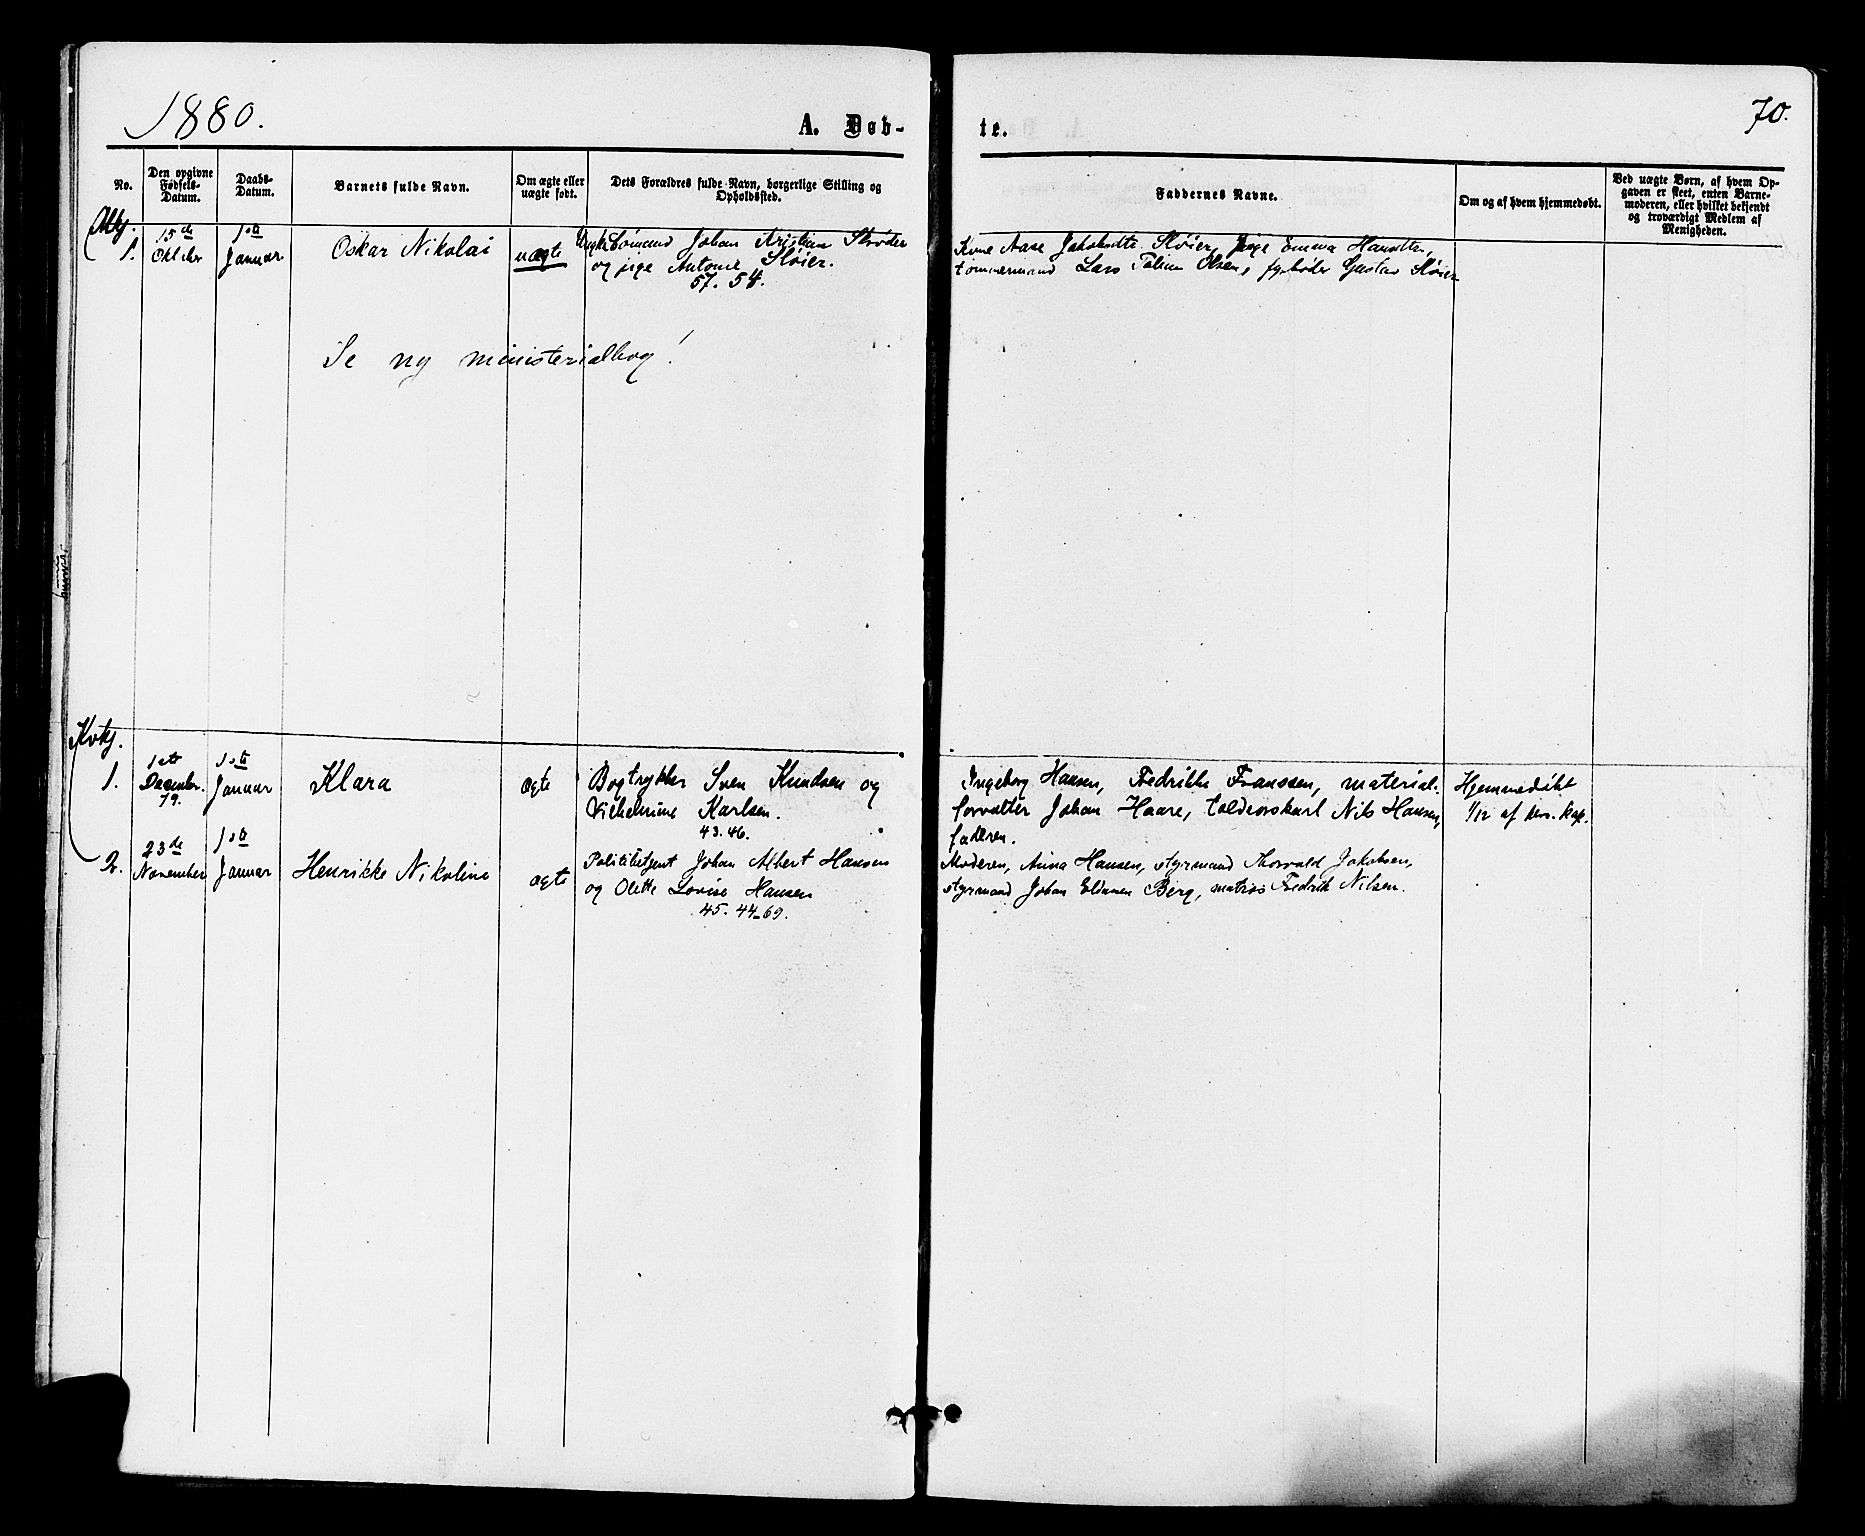 1880.
A. Døb-
te.
70.
No.
Den opgivne
Fødsels-
Datum.
Daabs-
Datum.
Barnets fulde Navn.
Om ægte eller
uægte født.
Dets Forældres fulde Navn, borgerlige Stilling og
Opholdssted.
Faddernes Navne.
Om og af hvem hjemmedøbt.
Ved uægte Børn, af hvem Op-
gaven er skeet, enten Barne-
moderen, eller hvilket bekjendt
og troværdigt Medlem af
Menigheden.
Mkj.
1.
15de
Oktober
1ste
Januar
Oskar Nikolai
uægte
Ungk. sømand Johan Kristian Skrøder
og pige Antonie Sløier.
57. 54.
Kone Aase Jakobsdtr. Sløier, pige Emma Hansdtr.,
tømmermand Lars Tobias Olsen, fyrbøder Gustav Sløier
Se ny ministerialbog!
Kvkj.
1.
1ste
December.
79.
1ste
Januar
Klara
ægte
Bogtrykker Sven Knudsen og
Vilhelmine Karlsen.
43. 46.
Ingeborg Hansen, Fredrikke Franssen, material-
forvalter Johan Haare, toldrorskarl Nils Hansen,
faderen.
Hjemmedøbt
1/12 af pers. kap.
2.
23de
November
1ste
Januar
Henrikke Nikoline
ægte
Politibetjent Johan Albert Hansen
og Olette Lovise Hansen
45. 44-69.
Moderen, Anna Hansen, styrmand Thorvald Jakobsen,
styrmand Johan Berg, matros Fredrik Nilsen.